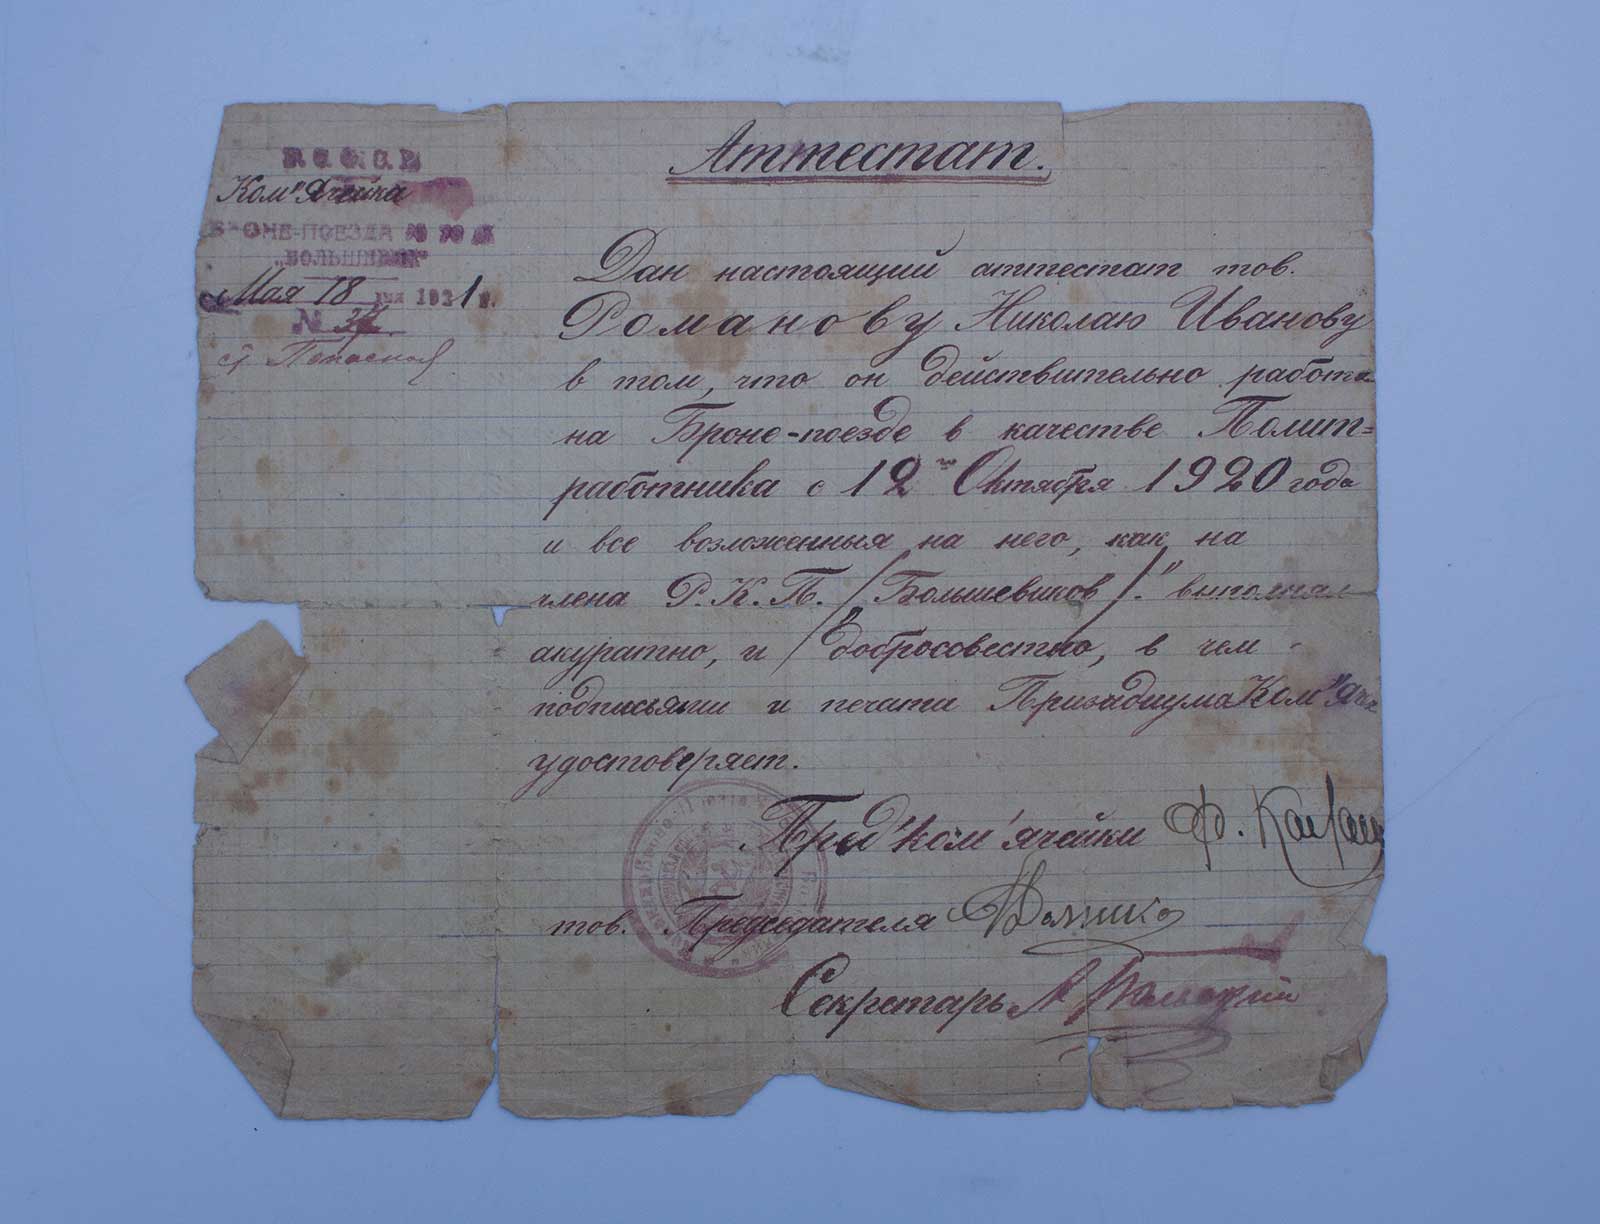 Р.С.Ф.С.Р.
Ком"Ячейка
БРОНЕ-ПОЕЗДА
„БОЛЬШЕВИК"
Мая 18 дня 1921 г.
№ 34
ст. Попасная
Аттестат.
Дан настоящий аттестат тов.
Романову Николаю Иванову
в том, что он действительно работа
на Броне-поезде в качестве Полит=
работника с 12го Октября 1920 года
и все возложенныя на него, как на
члена Р.К.П. /"Большевиков"/. выполнял
акуратно, и добросовестно, в чем
подписьями и печати Призидиума Ком"Яч
удостоверяет.
Пред'ком'ячейки Ф.
тов. Председателя
Секретарь